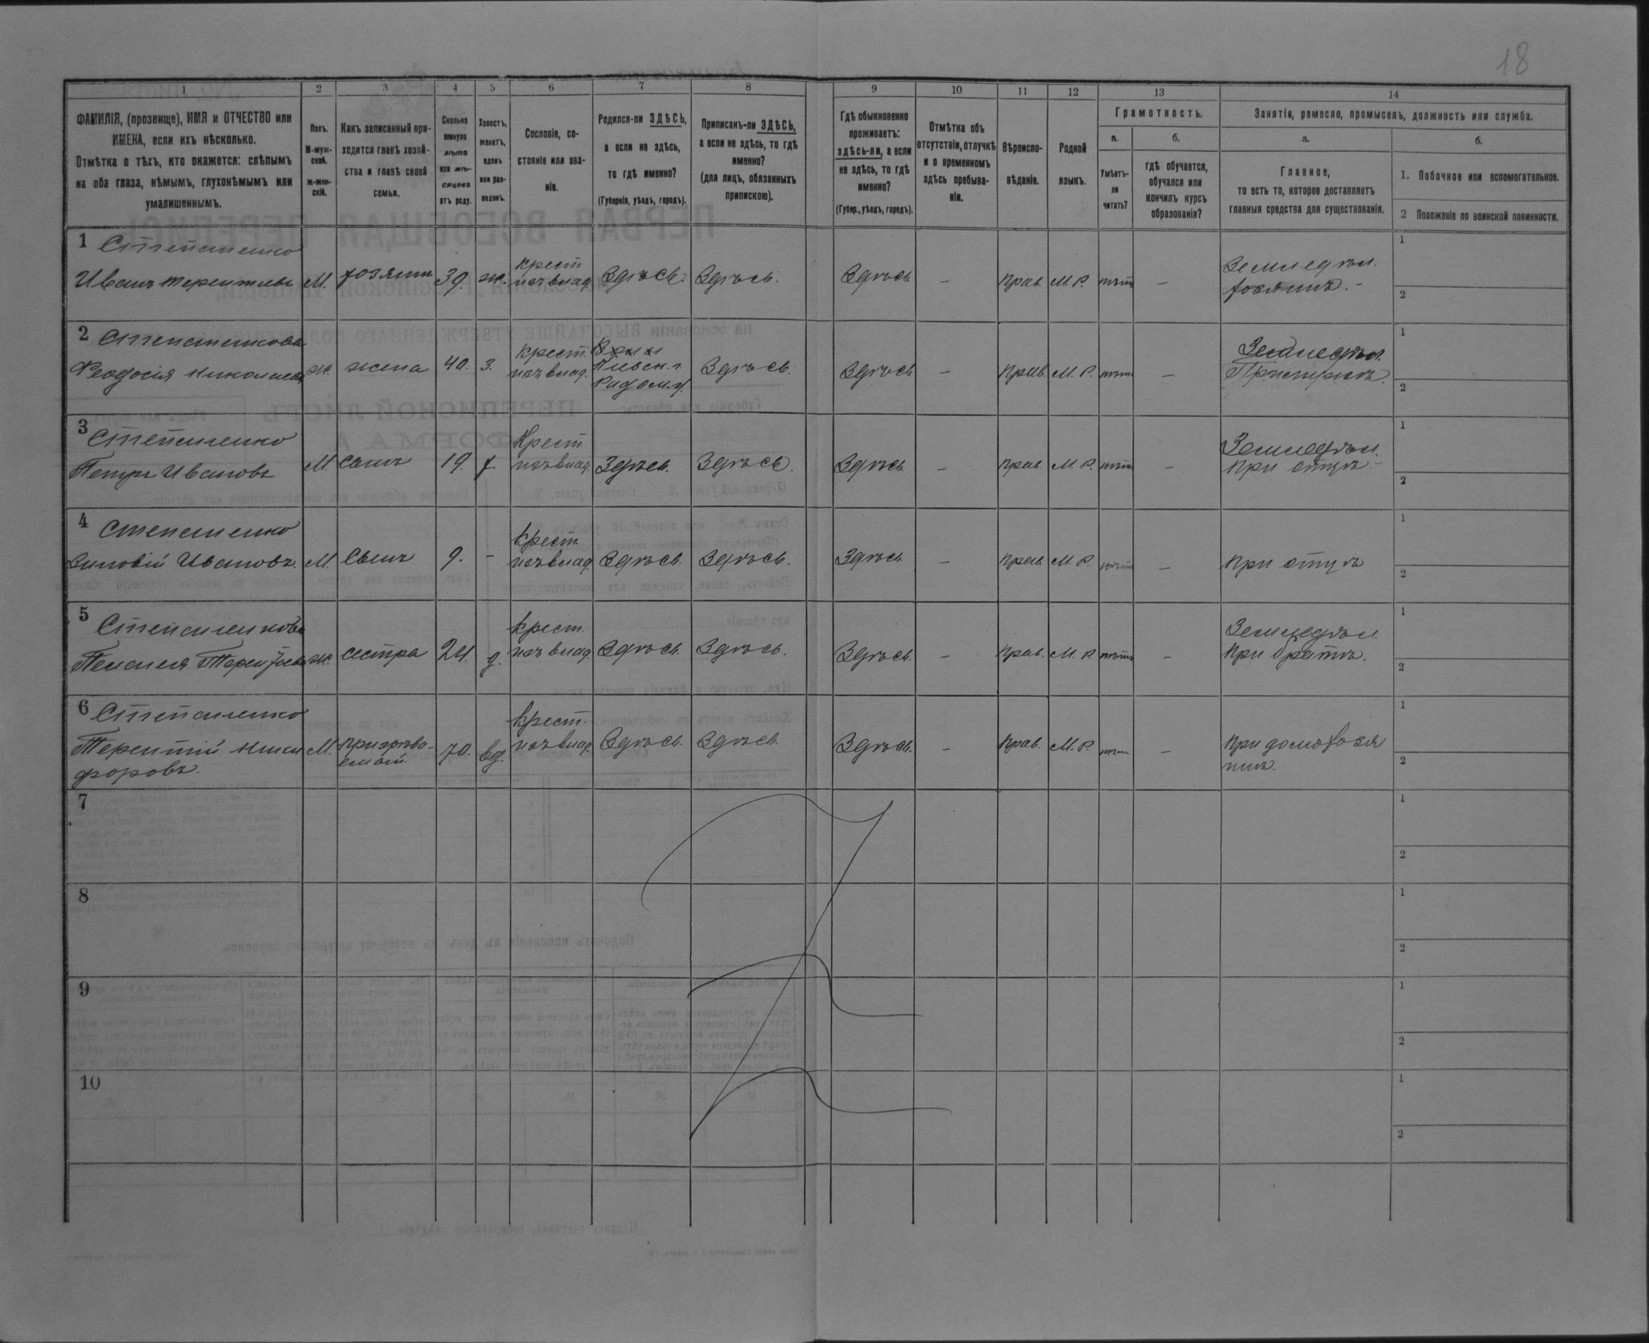 18
1 2 3 4 5 6 7 8 9 10 11 12 13 14
ФАМИЛІЯ, (прозвище), ИМЯ и ОТЧЕСТВО или
ИМЕНА, если ихъ нѣсколько.
Отмѣтка о тѣхъ, кто окажется: слѣпымъ
на оба глаза, нѣмымъ, глухонѣмымъ или
умалишеннымъ.
Полъ.
М-муж-
ской.
Ж-жен-
скій.
Какъ записанный при-
ходится главѣ хозяй-
ства и главѣ своей
семьи.
Сколько
минуло
лѣтъ
или мѣ-
сяцевъ
отъ роду.
Холостъ,
женатъ,
вдовъ
или раз-
веденъ.
Сословіе, со-
стояніе или зва-
ніе.
Родился-ли ЗДѢСЬ,
а если не здѣсь,
то гдѣ именно?
(Губернія, уѣздъ, городъ).
Приписанъ-ли ЗДѢСЬ,
а если не здѣсь, то гдѣ
именно?
(для лицъ, обязанныхъ
припискою).
Гдѣ обыкновенно
проживаетъ:
здѣсь-ли, а если
не здѣсь, то гдѣ
именно?
(Губер., уѣздъ, городъ).
Отмѣтка объ
отсутствіи, отлучкѣ
и о временномъ
здѣсь пребыва-
ніи.
Вѣроиспо-
вѣданіе.
Родной
языкъ.
Грамотность.
а.
Умѣетъ-
ли
читать?
б.
гдѣ обучается,
обучался или
кончилъ курсъ
образованія?
Занятіе, ремесло, промыселъ, должность или служба.
а.
Главное,
то есть то, которое доставляетъ
главныя средства для существованія.
б.
1. Побочное или вспомогательное.
2 Положеніе по воинской повинности.
1 Степаненко
Иванъ Терентьевъ М. хозяинъ 39. ж. крест. изъ влад. Здѣсь. Здѣсь. Здѣсь — прав. М.Р. нѣтъ — Земледѣл. хозяинъ. —
1
2
2 Степаненкова
Феодосія Николаева ж. жена 40. з. крест. изъ влад. Здѣсь. Здѣсь — прав. М.Р. нѣтъ — Земледѣл.
1
2
3 Степаненко
Петръ Ивановъ М. сынъ 19. х. Крест. изъ влад. Здѣсь. Здѣсь. Здѣсь — прав. М.Р. нѣтъ — Земледѣл. при отцѣ —
1
2
4 Степаненко
Зиновій Ивановъ М. сынъ 9. — крест. изъ влад. Здѣсь. Здѣсь. Здѣсь — прав. М.Р. нѣтъ — при отцѣ
1
2
5 Степаненкова
Пелагея ж. сестра 24. д. крест. изъ влад. Здѣсь. Здѣсь. Здѣсь. — прав. М.Р. нѣтъ — Земледѣл. при братѣ.
1
2
6 Степаненко
Терентій Ники
форовъ. М. призрѣва-
емый 70. вд. крест. изъ влад. Здѣсь. Здѣсь. Здѣсь. — прав. М.Р. нѣтъ — при домохозя
инѣ.
1
2
7
1
2
8
1
2
9
1
2
10
1
2